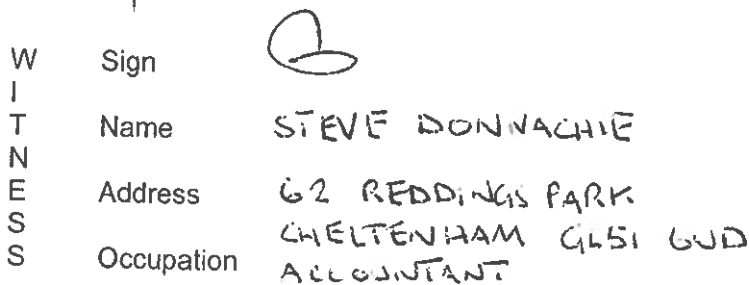 WITNESS
Sign
Name STEVE DONNACHIE
Address 62 REDDINGS PARK
CHELTENHAM GL51 6UD
Occupation ACCOUNTANT